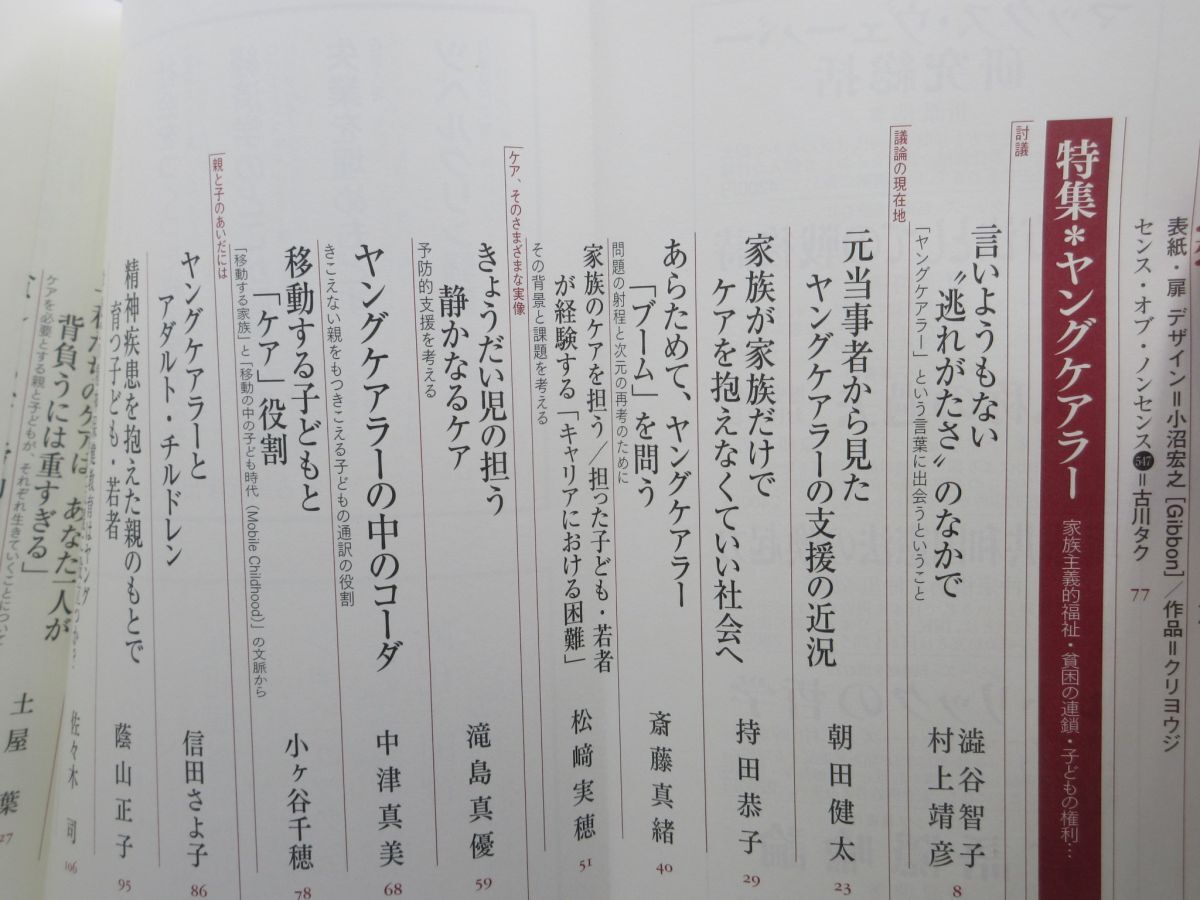 表紙・扉 デザイン＝小沼宏之［Gibbon］／作品＝クリヨウジ
センス・オブ・ノンセンス 547 ＝古川タク 77
特集＊ヤングケアラー 家族主義的福祉・貧困の連鎖・子どもの権利…
討議
言いようもない
〝逃れがたさ〟のなかで
「ヤングケアラー」という言葉に出会うということ
澁谷智子
村上靖彦
8
議論の現在地
元当事者から見た
ヤングケアラーの支援の近況
朝田健太
23
家族が家族だけで
ケアを抱えなくていい社会へ
持田恭子
29
あらためて、ヤングケアラー
「ブーム」を問う
問題の射程と次元の再考のために
斎藤真緒
40
家族のケアを担う／担った子ども・若者
が経験する「キャリアにおける困難」
その背景と課題を考える
松﨑実穂
51
ケア、そのさまざまな実像
きょうだい児の担う
静かなるケア
予防的支援を考える
滝島真優
59
ヤングケアラーの中のコーダ
きこえない親をもつきこえる子どもの通訳の役割
中津真美
68
移動する子どもと
「ケア」役割
「移動する家族」と「移動の中の子ども時代（Mobile Childhood）」の文脈から
小ヶ谷千穂
78
親と子のあいだには
ヤングケアラーと
アダルト・チルドレン
信田さよ子
86
精神疾患を抱えた親のもとで
育つ子ども・若者
蔭山正子
95
佐々木 司
106
のケアは、あなた一人が
背負うには重すぎる」
ケアを必要とする親と子どもが、それぞれ生きていくことについて
土屋 葉
27